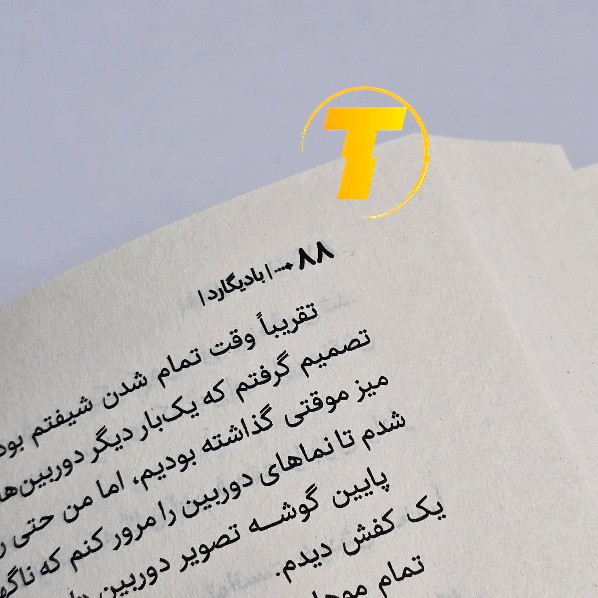 T
۸۸ ⟵ | بادیگارد |
تقریباً وقت تمام شدن شیفتم بود
تصمیم گرفتم که یک‌بار دیگر دوربین‌ها
میز موقتی گذاشته بودیم، اما من حتی
شدم تا نماهای دوربین را مرور کنم که
پایین گوشــه تصویر دوربین
یک کفش دیدم.
تمام